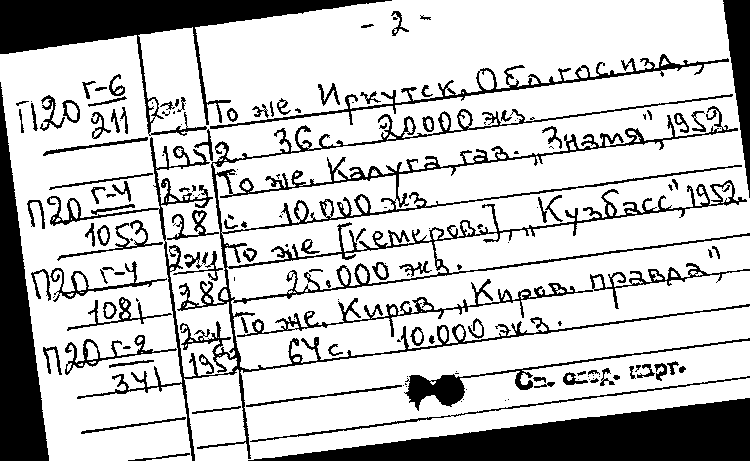 - 2 -
П20 г-6/211 2эк То же. Иркутск, Обл.гос.изд.,
1952. 36с. 20.000 экз.
П20 г-4/1053 2эк То же. Калуга, газ. „Знамя", 1952.
28 с. 10.000 экз.
П20 г-4/1081 2эк То же [Кемерово], „Кузбасс", 1952.
28с. 25.000 экз.
П20 г-2/341 2эк То же. Киров, „Киров. правда",
1952. 64с. 10.000 экз.
См. след. карт.